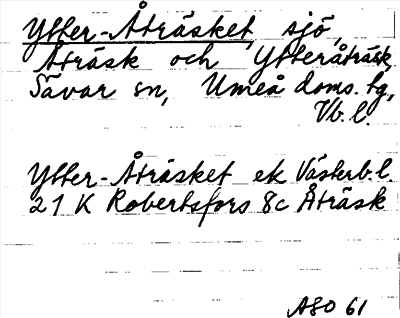 Ytter-Åträsket, sjö,
Åträsk och Ytteråträsk,
Sävar sn, Umeå doms. tg,
Vb. l.
Ytter-Åträsket ek Västerb. l.
21 K Robertsfors 8c Åträsk
ASO 61